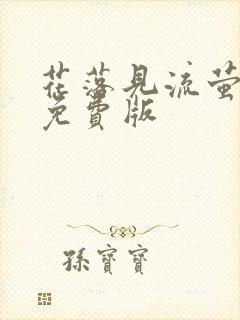 花落見流萤
免費版
孫寶寶